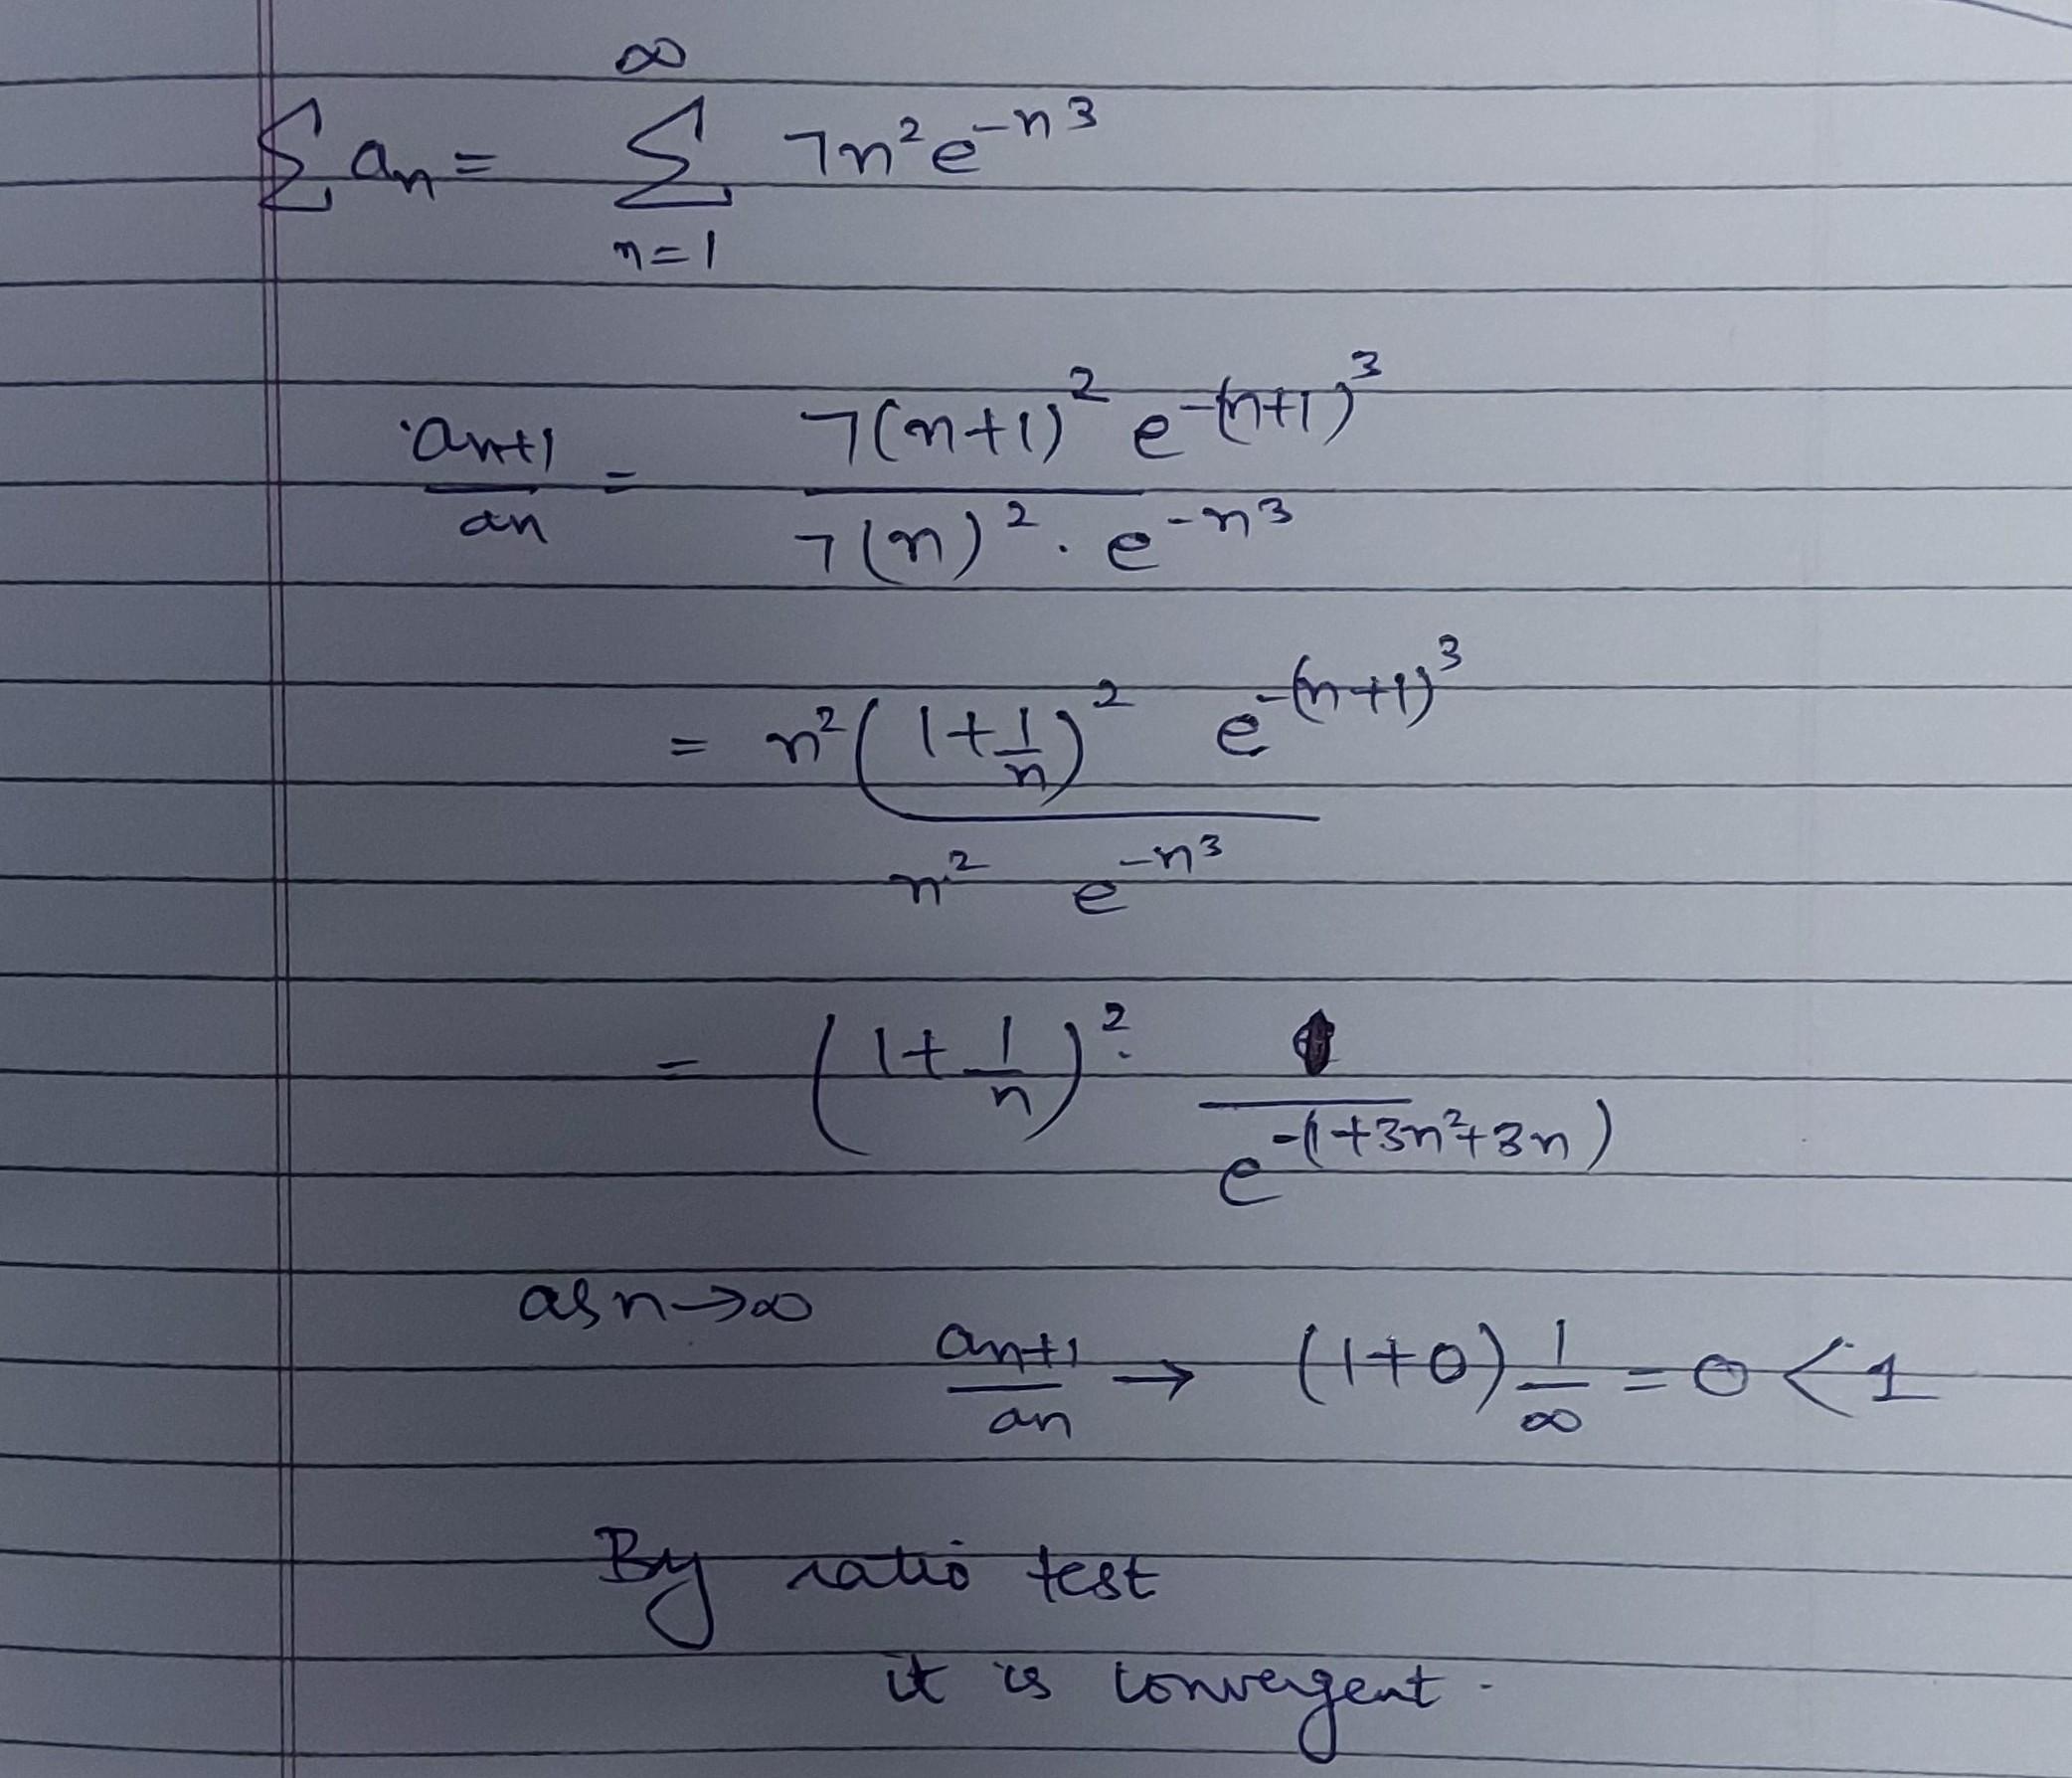 ∑ aₙ = ∞∑n=1 7n²e^-n³
aₙ₊₁/aₙ = 7(n+1)² e^-(n+1)³ / 7(n)² · e^-n³
= n²(1+1/n)² e^-(n+1)³ / n² e^-n³
= (1+1/n)² · 1/e^-(1+3n²+3n)
as n→∞
aₙ₊₁/aₙ → (1+0) 1/∞ = 0 < 1
By ratio test
it is convergent.